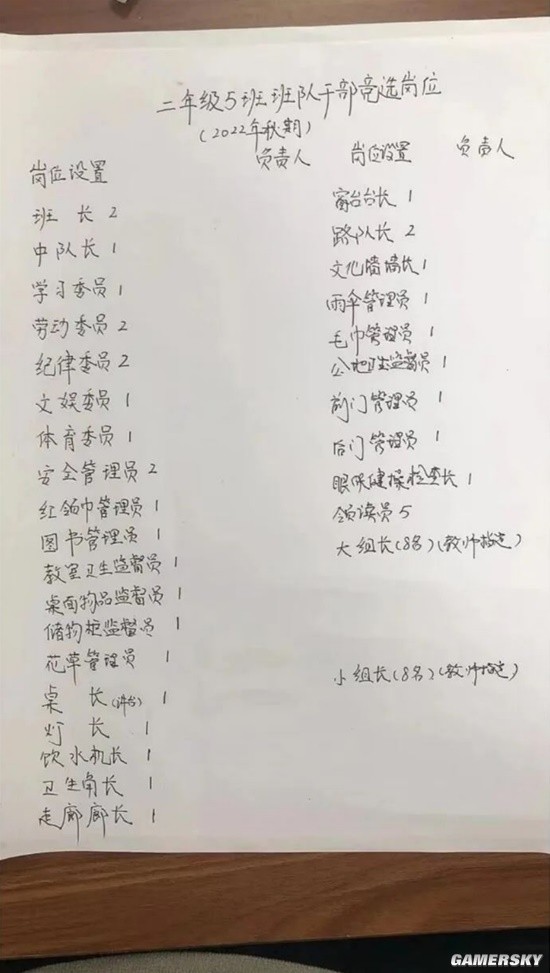 二年级5班班队干部竞选岗位
(2022年秋期)
岗位设置
负责人
班 长 2
中队长 1
学习委员 1
劳动委员 2
纪律委员 2
文娱委员 1
体育委员 1
安全管理员 2
红领巾管理员 1
图书管理员 1
教室卫生监督员 1
桌面物品监督员 1
储物柜监督员 1
花草管理员 1
桌 长(讲台) 1
灯 长 1
饮水机长 1
卫生角长 1
走廊廊长 1
岗位设置
负责人
窗台台长 1
路队长 2
文化墙墙长 1
雨伞管理员 1
毛巾管理员 1
公地卫生监督员 1
前门管理员 1
后门管理员 1
眼保健操检查长 1
领读员 5
大组长(8名)(教师指定)
小组长(8名)(教师指定)
GAMERSKY